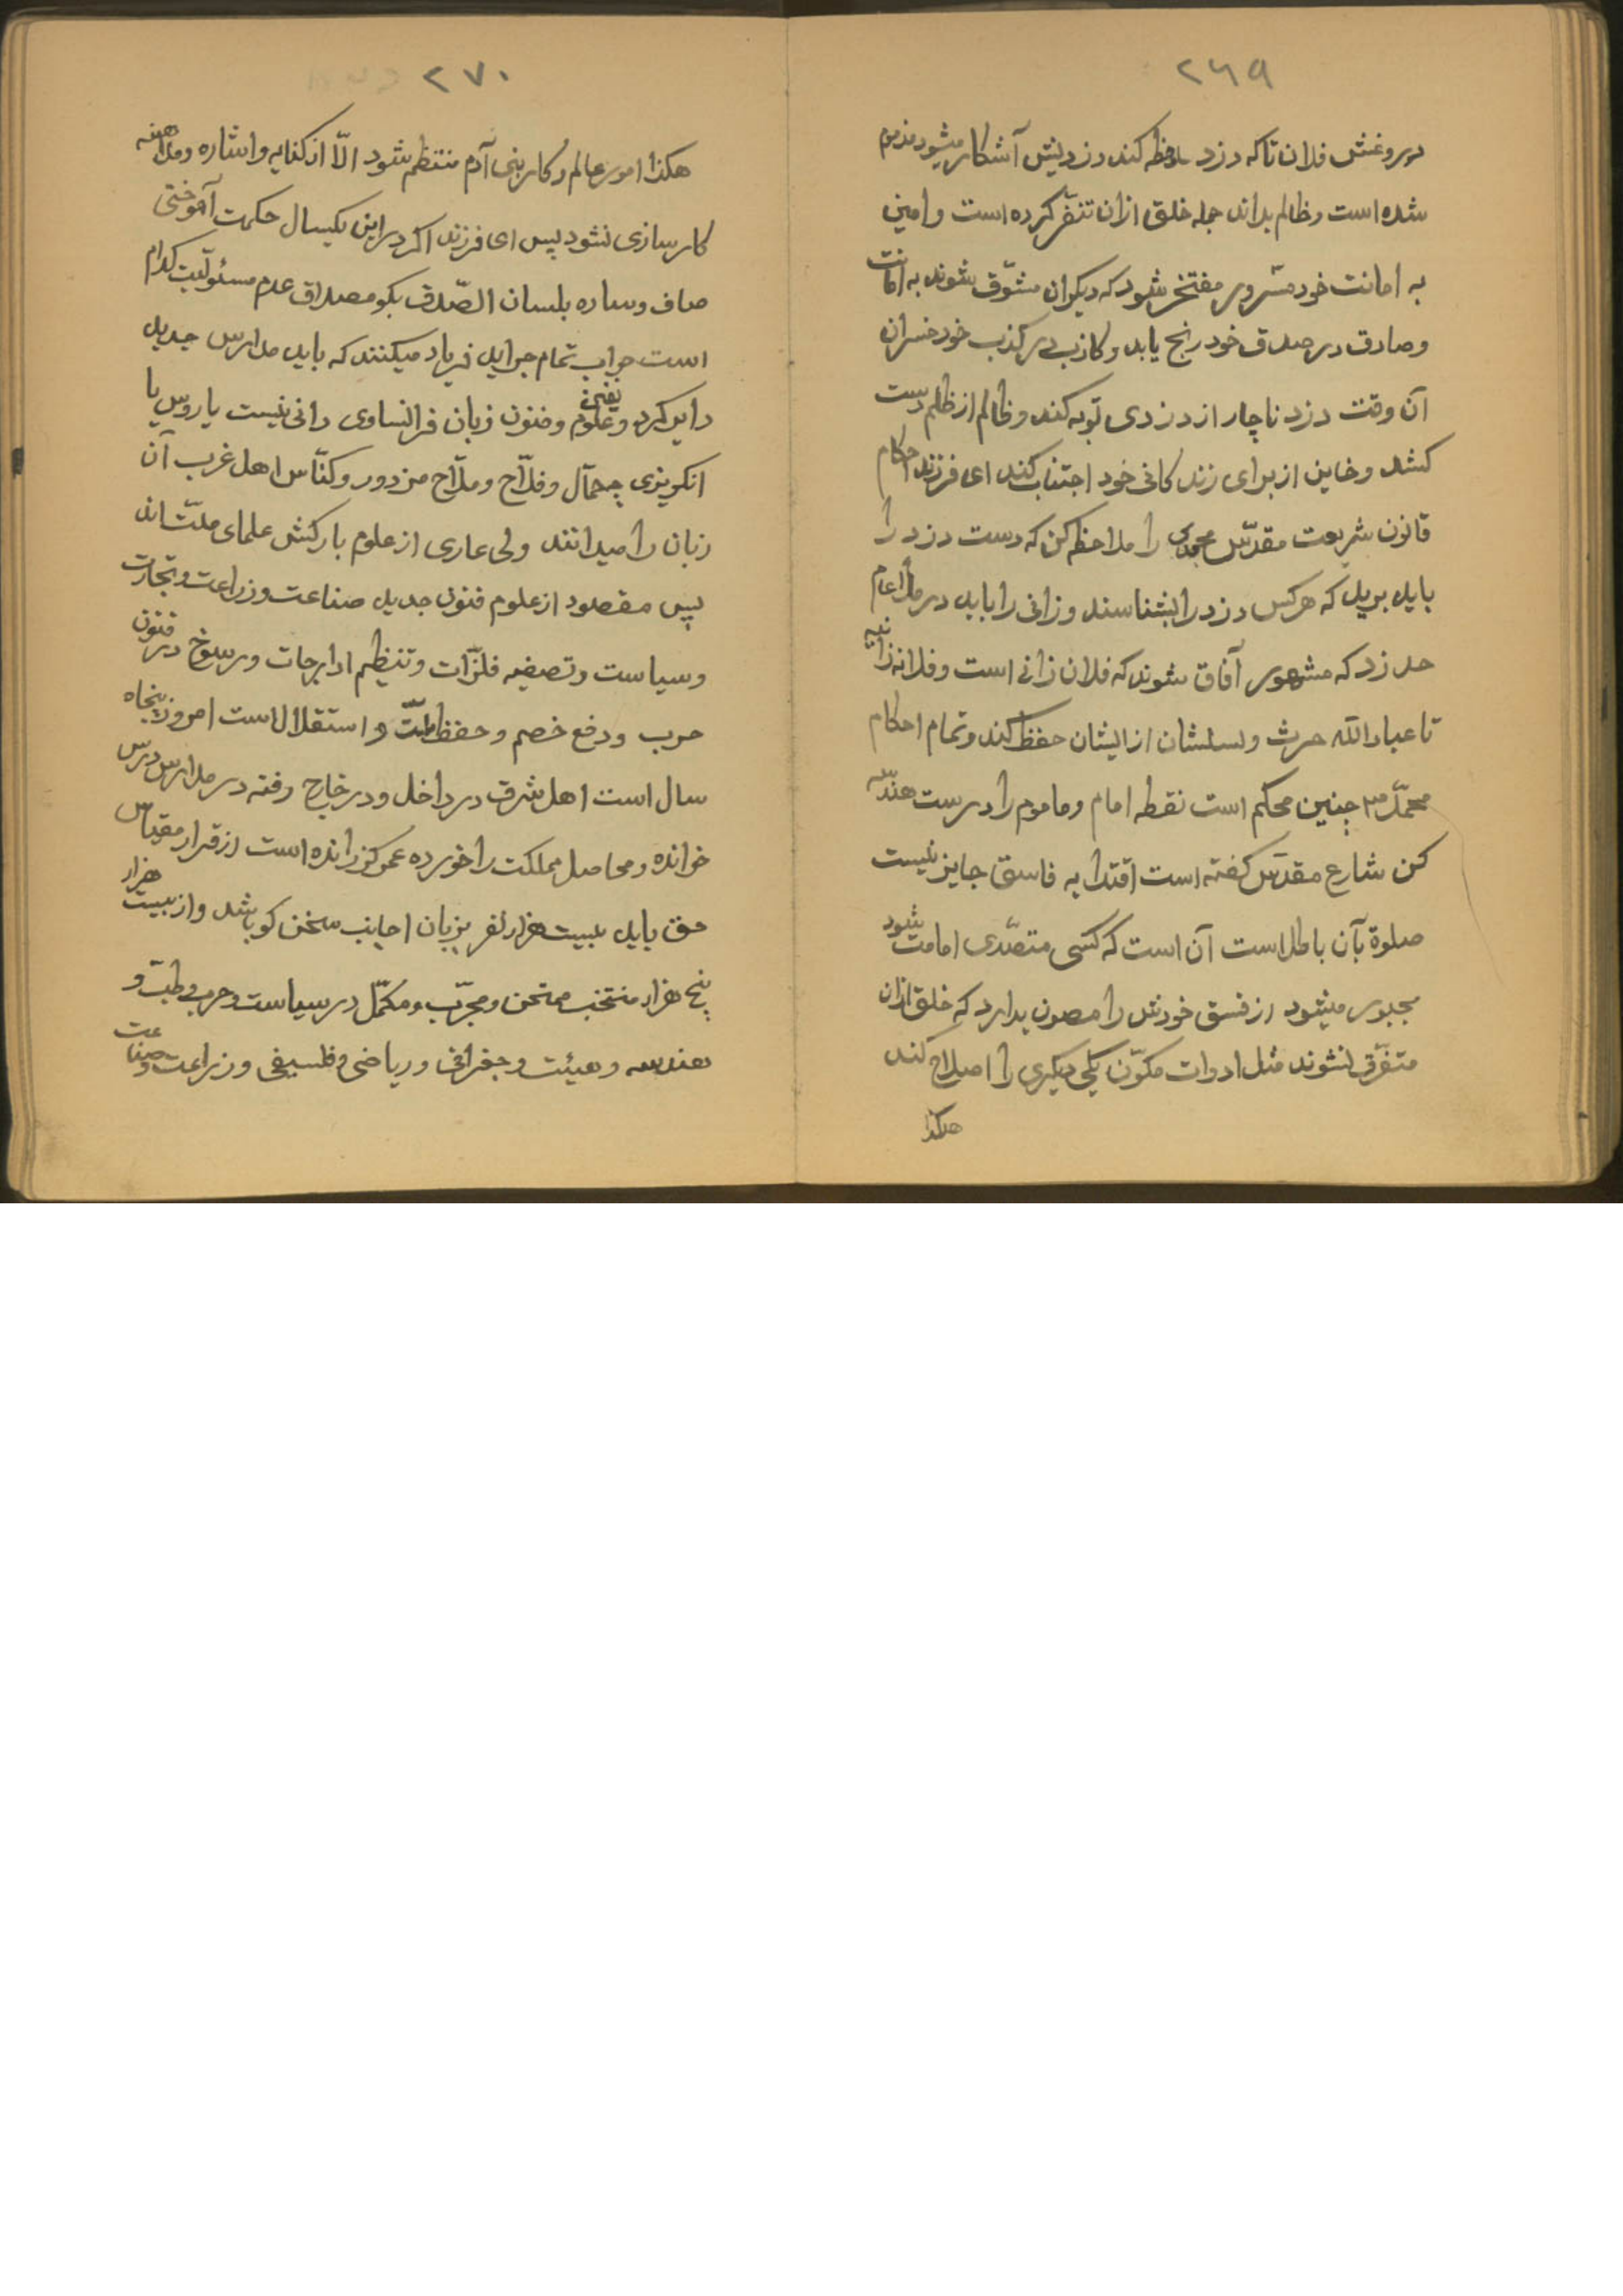 ۲۶۹
دروغش فلان تا که دزد ملاحظه کند دزدیش آشکار میشود مذموم
شده است و ظالم بداند جمله خلق ازان تنفّر کرده است و امین
به امانت خود مسرور مفتخر شود که دیکران مشوّق شوند به امانت
و صادق در صدق خود رنج یابد و کاذب در کذب خود خسران
آن وقت دزد ناچار از دزدی توبه کند و ظالم از ظلم دست
کشد و خاین از برای زندکانی خود اجتناب کند ای فرزند احکام
قانون شریعت مقدّس محمدی را ملاحظه کن که دست دزد را
باید برید که هرکس دزد را بشناسند و زانی را باید در ملأ عام
حد زد که مشهور آفاق شوند که فلان زانی است و فلانه زانیه
تا عبادالله حرث و نسلشان از ایشان حفظ کند و تمام احکام
محمّد ص چنین محکم است نقطه امام و ماموم را درست هندسه
کن شارع مقدّس کفته است اقتدا به فاسق جایز نیست
صلوة بآن باطل است آن است که کسی متصّدی امامت شود
مجبور میشود از فسق خودش را مصون بدارد که خلق ازان
متفرّق نشوند مثل ادوات مکوّن یکی دیکری را اصلاح کند
هکذا
۲۷۰
هکذا امور عالم و کار بنی آدم منتظم شود الّا از کنایه و اشاره و مداهنه
کارسازی نشود پس ای فرزند اکر در این یکسال حکمت آموختی
صاف و ساده بلسان الصّدق بکو مصداق عدم مسئولیّت کدام
است جواب تمام جراید فریاد میکنند که باید مدارس جدید
دایر کرد و علوم و فنون یعنی زبان فرانساوی دانی نیست یا روس یا
انکریزی چه حمّال و فلّاح و ملّاح مزدور و کنّاس اهل غرب آن
زبان را میدانند ولی عاری از علوم بارکش علمای ملّت اند
پس مقصود از علوم فنون جدید صناعت و زراعت و تجارت
و سیاست و تصفیه فلزّات و تنظیم ادارجات و رسوخ در فنون
حرب و دفع خصم و حفظ ملّت و استقلال است امروز پنجاه
سال است اهل شرق در داخل و در خارج رفته در مدارس درس
خوانده و محاصل مملکت را خورده عمر کزرانده است از قرار مقیاس
حق باید بیست هزار نفر بزبان اجانب سخن کو باشد و از بیست هزار
پنج هزار منتخب ممتحن و مجرّب و مکمّل در سیاست و حرب و طبّ و
هندسه و هیئت و جغرافی و ریاضی و فلسیفی و زراعت و صناعت